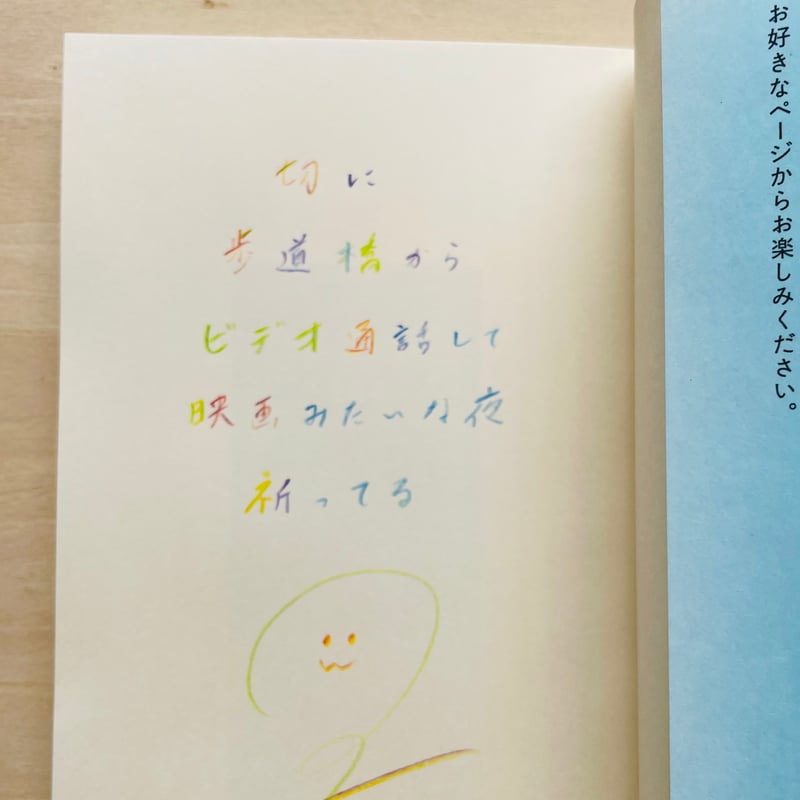 切に
歩道橋から
ビデオ通話して
映画みたいな夜
祈ってる
お好きなページからお楽しみください。